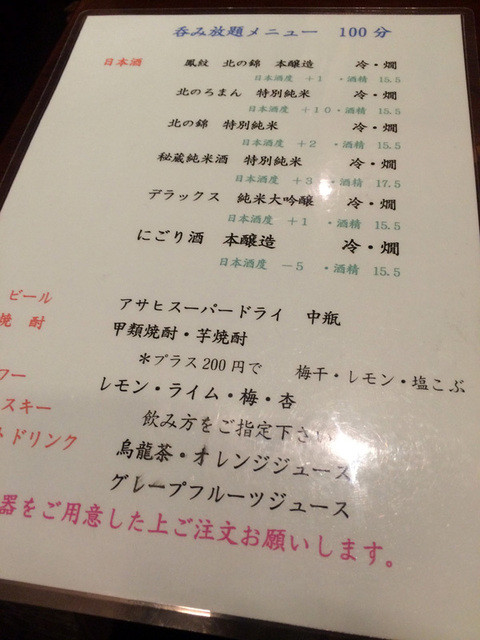 呑み放題メニュー 100分
日本酒 鳳紋 北の錦 本醸造 冷・燗
日本酒度 +1 ・酒精 15.5
北のろまん 特別純米 冷・燗
日本酒度 +10・酒精 15.5
北の錦 特別純米 冷・燗
日本酒度 +2 ・酒精 15.5
秘蔵純米酒 特別純米 冷・燗
日本酒度 +3 ・酒精 17.5
デラックス 純米大吟醸 冷・燗
日本酒度 +1 ・酒精 15.5
にごり酒 本醸造 冷・燗
日本酒度 -5 ・酒精 15.5
ビール アサヒスーパードライ 中瓶
焼酎 甲類焼酎・芋焼酎
*プラス200円で 梅干・レモン・塩こぶ
ワー レモン・ライム・梅・杏
スキー 飲み方をご指定下さい
トドリンク 烏龍茶・オレンジジュース
グレープフルーツジュース
器をご用意した上ご注文お願いします。